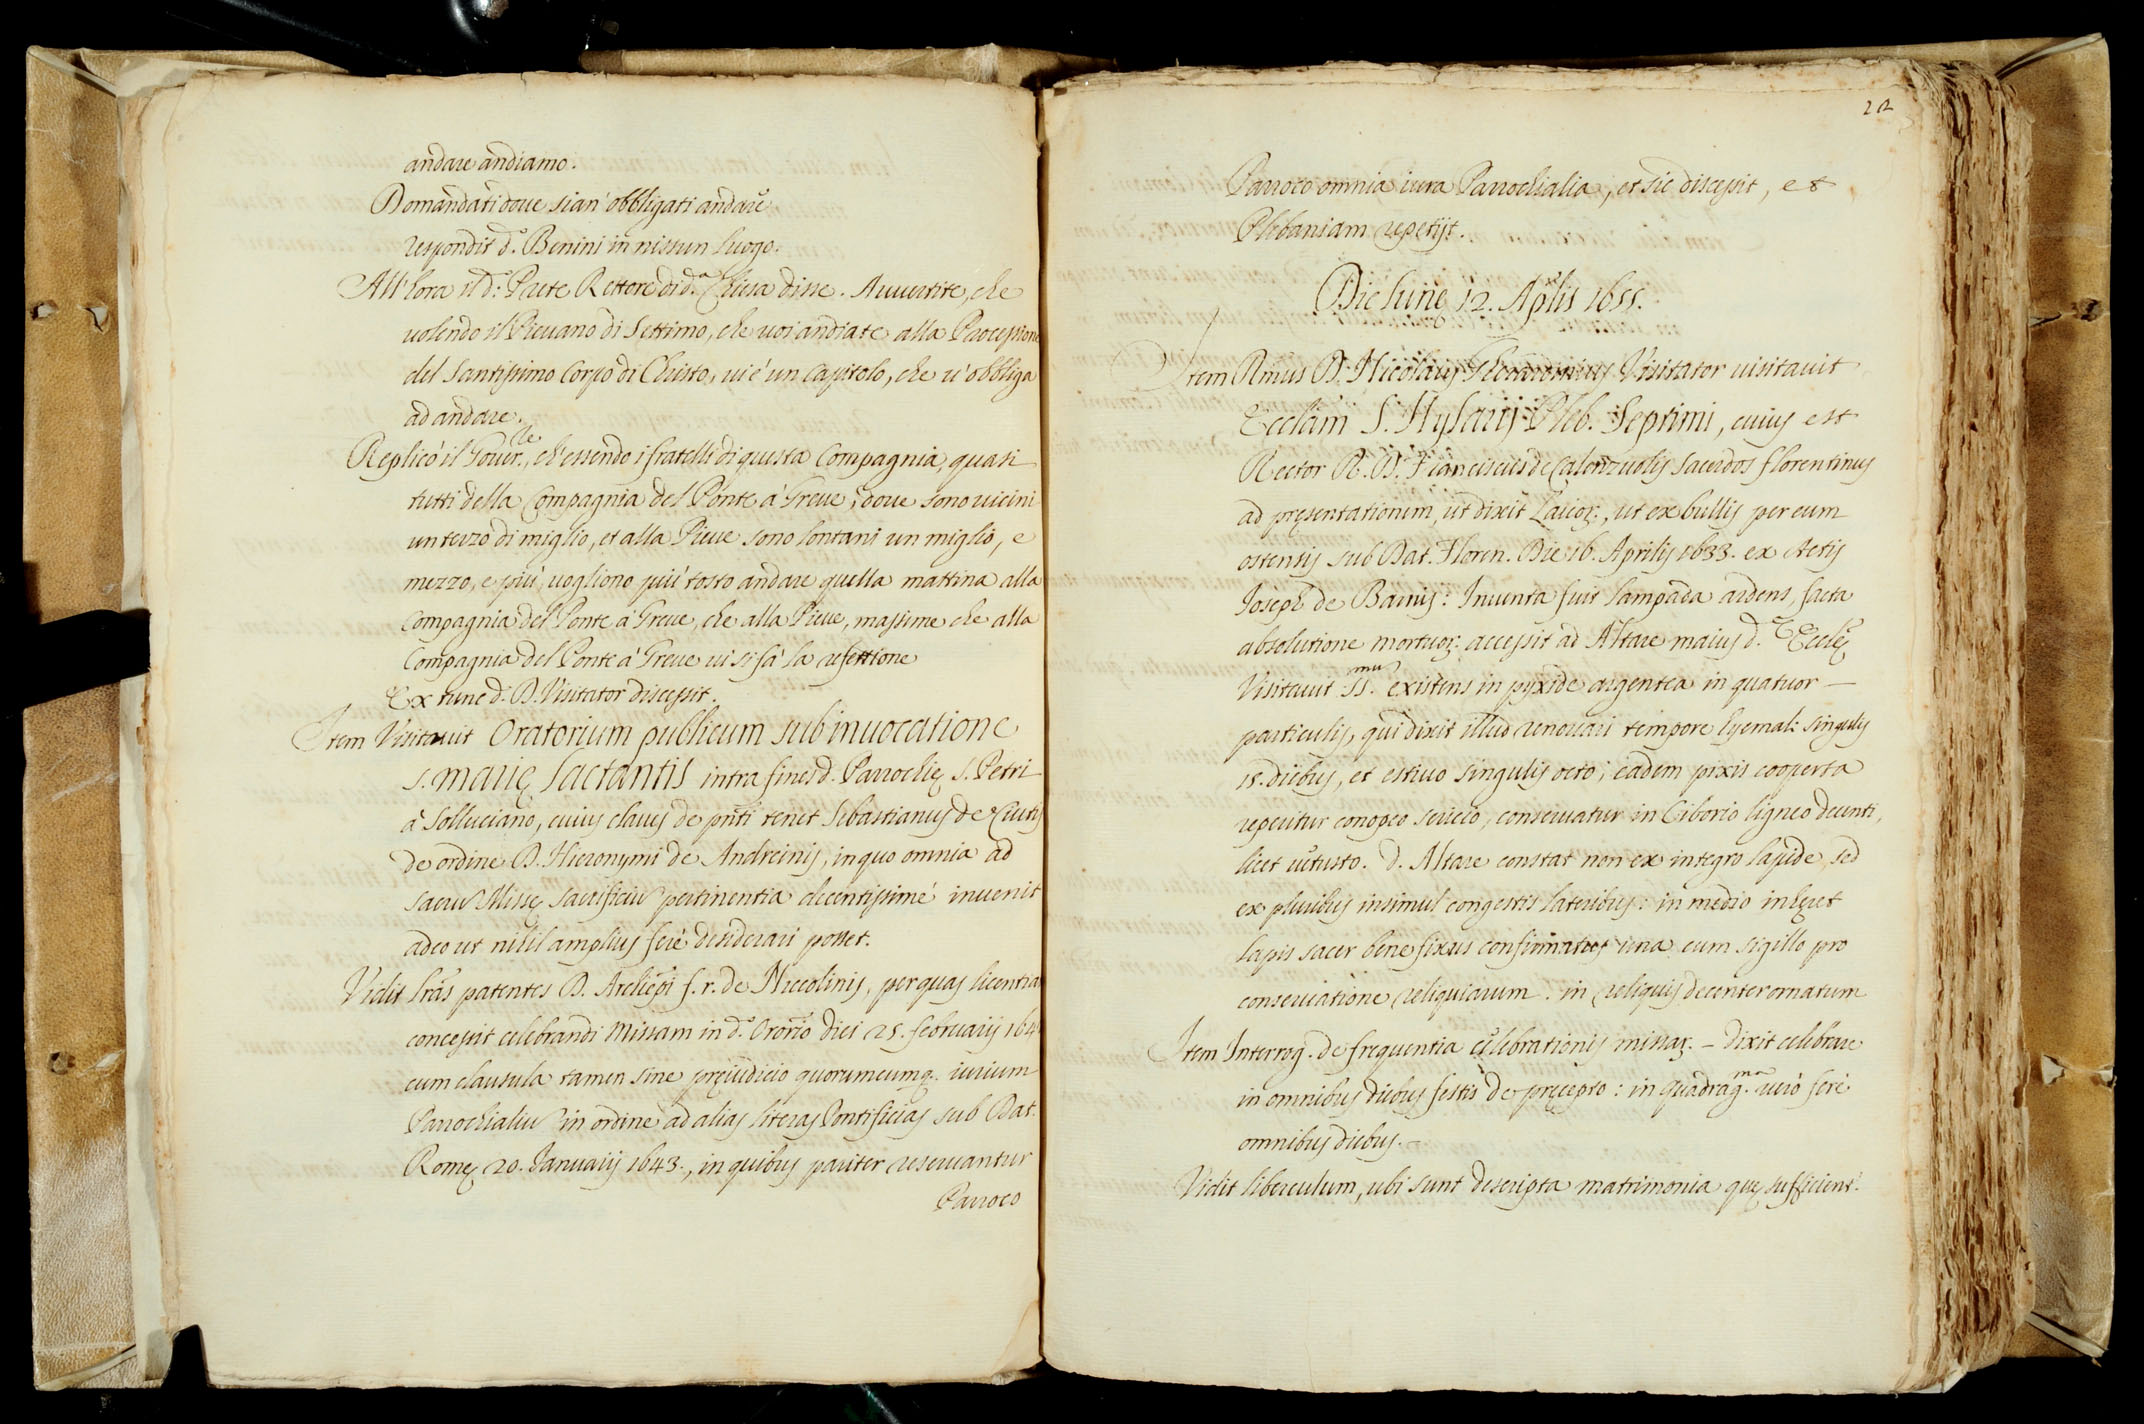 andare andiamo.
Domandati doue sian' obbligati andare
respondit d.º Benini in nissun luogo.
All'hora il d.º Prete Rettore di d.ª Chiesa disse. Auuertite, che
uolendo il Pieuano di Settimo, che uoi andiate alla Processione
del Santissimo Corpo di Christo, ui é un Capitolo, che u' obbliga
ad andare.
Replicó il Gouer.re, ch'essendo i fratelli di questa Compagnia, quasi
tutti della Compagnia del Ponte á Greue, doue sono uicini
un terzo di miglio, et alla Pieue sono lontani un miglio, e
mezzo, e piú, uogliono piú tosto andare quella mattina alla
Compagnia del Ponte á Greue, che alla Pieue, massime che alla
Compagnia del Ponte á Greue ui si fá la refettione
Ex tunc d. D. Visitator discessit.
Item Visitauit Oratorium publicum sub inuocatione
S. Marię lactantis intra fines d. Parrochię S. Petri
á Solluciano, cuius claues de pñti tenet Sebastianus de Ciutis
de ordine D. Hieronymi de Andreinis, in quo omnia ad
sacru Missę Sacrificiu pertinentia decentissimé inuenit
adeo ut nihil amplius feré desiderari posset.
Vidit lrãs patentes D. Archiepi f. r. de Niccolinis, per quas licentia
concessit celebrandi Missam in d.º Ororio diei 25. februarij 164
cum clausula tamen sine pręiudicio quorumcumq. iurium
Parrochialiu in ordine ad alias literas Pontificias sub Dat.
Romę 20. Januarij 1643., in quibus pariter reseruantur
Parroco
22
Parroco omnia iura Parrochialia, et sic discessit, et
Plebaniam repetijt.
Die lunę 12. Aplis 1655.
Item Rmus D. Nicolaus Visitator uisitauit
Ecclãm S. Hylarij Pleb. Septimi, cuius est
Rector R. D. Franciscus de Calenzuolis Sacerdos florentinus
ad pręsentationem, ut dixit Laicor., ut ex bullis per eum
ostensis sub Dat. Floren. Die 16. Aprilis 1633. ex Actis
Joseph de Barnis: Inuenta fuit lampada ardens, facta
absolutione mortuor. accessit ad Altare maius d. Ecclę
Visitauit SS.mu existens in pyxide argentea in quatuor –
particulis, qui dixit illud renouari tempore hyemali singulis
15. diebus, et estiuo singulis octo; eadem pixis cooperta
reperitur conopeo serico, conseruatur in Ciborio ligneo decenti,
licet uetusto. d. Altare constat non ex integro lapide, sed
ex pluribus insimul congestis lateribus: in medio inhęret
lapis sacer bene fixus confirmatus una cum sigillo pro
conseruatione reliquiarum. in reliquis decenter ornatum
Item Interrog. de frequentia celebrationis missar. – dixit celebrare
in omnibus diebus festis de pręcepto: in quadrag.ma ueró feré
omnibus diebus. –
Vidit liberculum, ubi sunt descripta matrimonia quę sufficient.